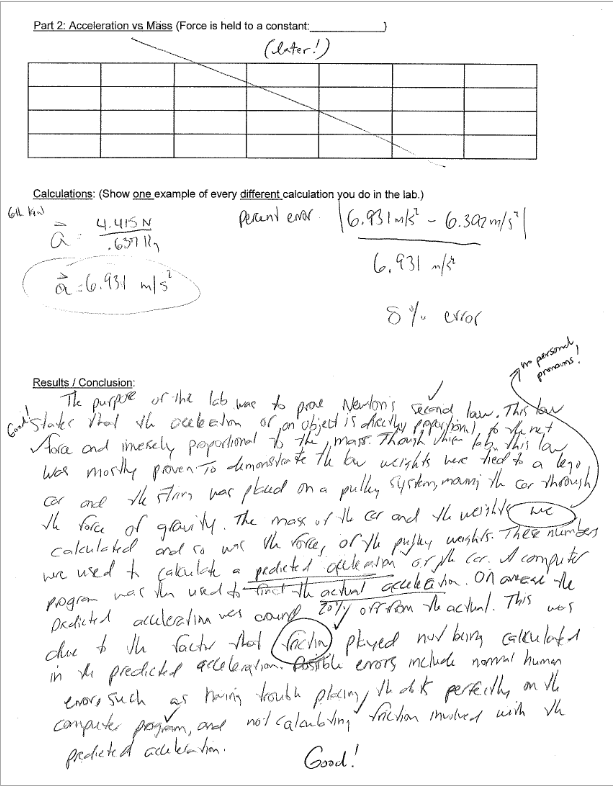 Part 2: Acceleration vs Mass (Force is held to a constant:____________)
(later!)
Calculations: (Show one example of every different calculation you do in the lab.)
a = 4.415 N / .637 kg
a = 6.931 m/s²
percent error: |6.931 m/s² - 6.392 m/s²|
6.931 m/s²
8% error
no personal pronouns!
Results / Conclusion:
The purpose of the lab was to prove Newton's second law. This law
Good! states that the acceleration of an object is directly proportional to the net
force and inversely proportional to the mass. Though this law
was mostly proven. To demonstrate the law weights were tied to a lego
car and the string was placed on a pulley system, the car through
the force of gravity. The mass of the car and the weights we
calculated and so was the force, of the weights. These numbers
were used to calculate a predicted acceleration of the car. A computer
program was then used to find the actual acceleration. On average the
predicted acceleration was around 20% off from the actual. This was
due to the factor that friction played not being calculated
in the predicted acceleration. Possible errors include normal human
errors such as having trouble placing the dots perfectly on the
computer program, and not calculating friction involved with the
predicted acceleration.
Good!